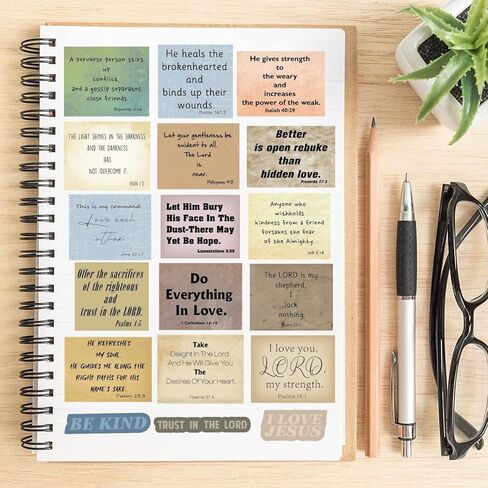 A perverse person stirs
up
conflict,
and a gossip separates
close friends.
Proverbs 16:28
He heals the
brokenhearted
and
binds up their
wounds.
Psalm 147:3
He gives strength
to
the weary
and
increases
the power of the weak.
Isaiah 40:29
THE LIGHT SHINES IN THE DARKNESS,
AND THE DARKNESS
HAS
NOT OVERCOME IT.
JOHN 1:5
Let your gentleness be
evident to all.
The Lord
is
near.
Philippians 4:5
Better
is open rebuke
than
hidden love.
Proverbs 27:5
This is my command:
Love each
other.
John 15:17
Let Him Bury
His Face In The
Dust-There May
Yet Be Hope.
Lamentations 3:29
Anyone who
withholds
kindness from a friend
forsakes the fear
of the Almighty.
Job 6:14
Offer the sacrifices
of the righteous
and
trust in the LORD.
Psalm 4:5
Do
Everything
In Love.
1 Corinthian 16:14
The LORD is my
shepherd,
I
lack
nothing.
Psalm 23:1
HE REFRESHES
MY SOUL.
HE GUIDES ME ALONG THE
RIGHT PATHS FOR HIS
NAME'S SAKE.
Psalms 23:3
Take
Delight In The Lord,
And He Will Give You
The
Desires Of Your Heart.
Psalms 37:4
I love you,
LORD,
my strength.
Psalms 18:1
BE KIND
TRUST IN THE LORD
I LOVE
JESUS